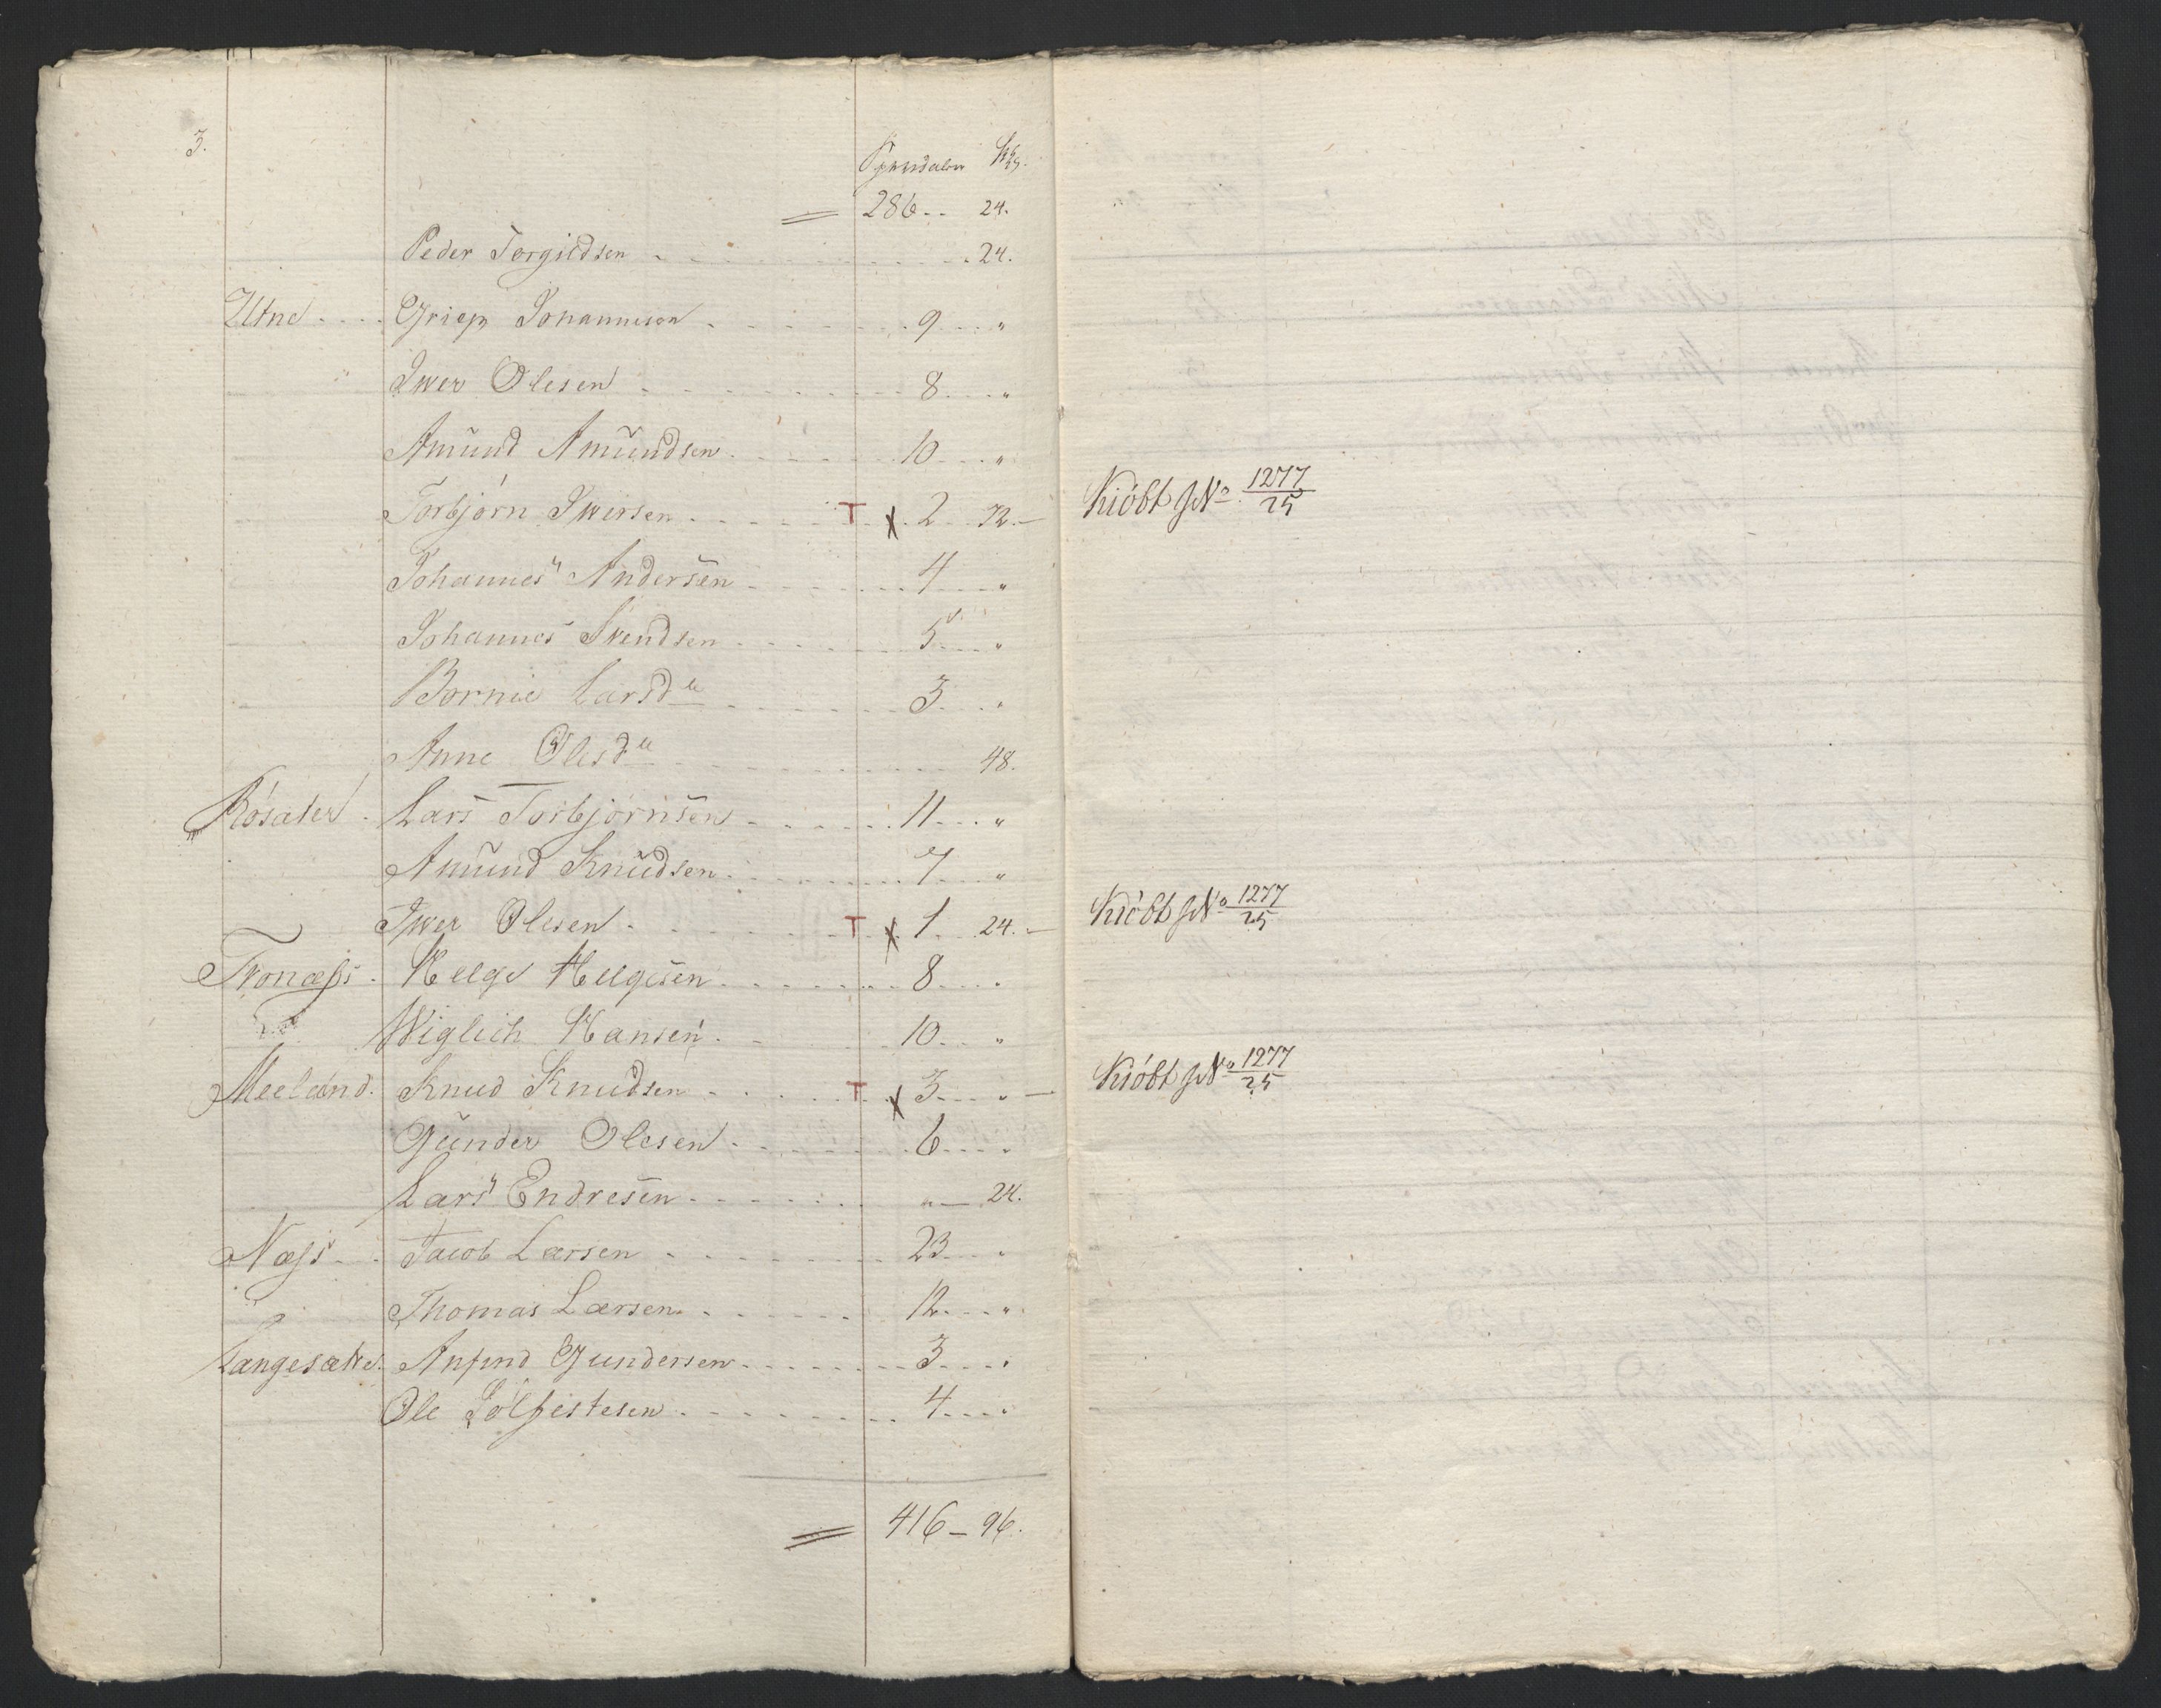 3.
Speciesdaler Skβ.
286 - - 24.
Peder Torgildsen - - - 24.
Utne - - - Griep Johannesen - - - 9 - - - "
Iver Olesen - - - 8 - - - "
Amund Amundsen - - - 10 - - - "
Torbjørn Iversen - - - T x 2 72. — Kiöbt No 1277/25
Johannes Andersen - - - 4 - - - "
Johannes Svendsen - - - 5 - - - "
Bornie Larsdr - - - 3 - - - "
Anne Olesdr - - - 48.
Røsater - Lars Torbjørnsen - - - 11 - - - "
Amund Knudsen - - - 7 - - - "
Iver Olesen - - - T x 1 24. — Kiöbt No 1277/25
Tronæss - Helge Helgesen - - - 8 - - - "
Wiglich Hansen - - - 10 - - - "
Meeland. Knud Knudsen - - - T x 3 - - - " — Kiöbt No 1277/25
Gunder Olesen - - - 6 - - - "
Lars Endresen - - - " — 24.
Næss - - Jacob Larsen - - - 23 - - - "
Thomas Larsen - - - 12 - - - "
Langesæter. Anfind Gundersen - - - 3 - - - "
Ole Sølfestesen - - - 4 - - - "
416 — 96.